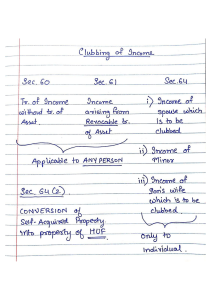 Clubbing of Income
Sec. 60 Sec. 61 Sec. 64
Tr. of Income without tr. of Asset.
Income arising from Revocable tr. of Asset
i) Income of spouse which is to be clubbed
Applicable to ANY PERSON
ii) Income of Minor
iii) Income of Son's wife which is to be clubbed.
Sec 64(2).
CONVERSION of Self-Acquired Property into property of HUF.
Only to individual.